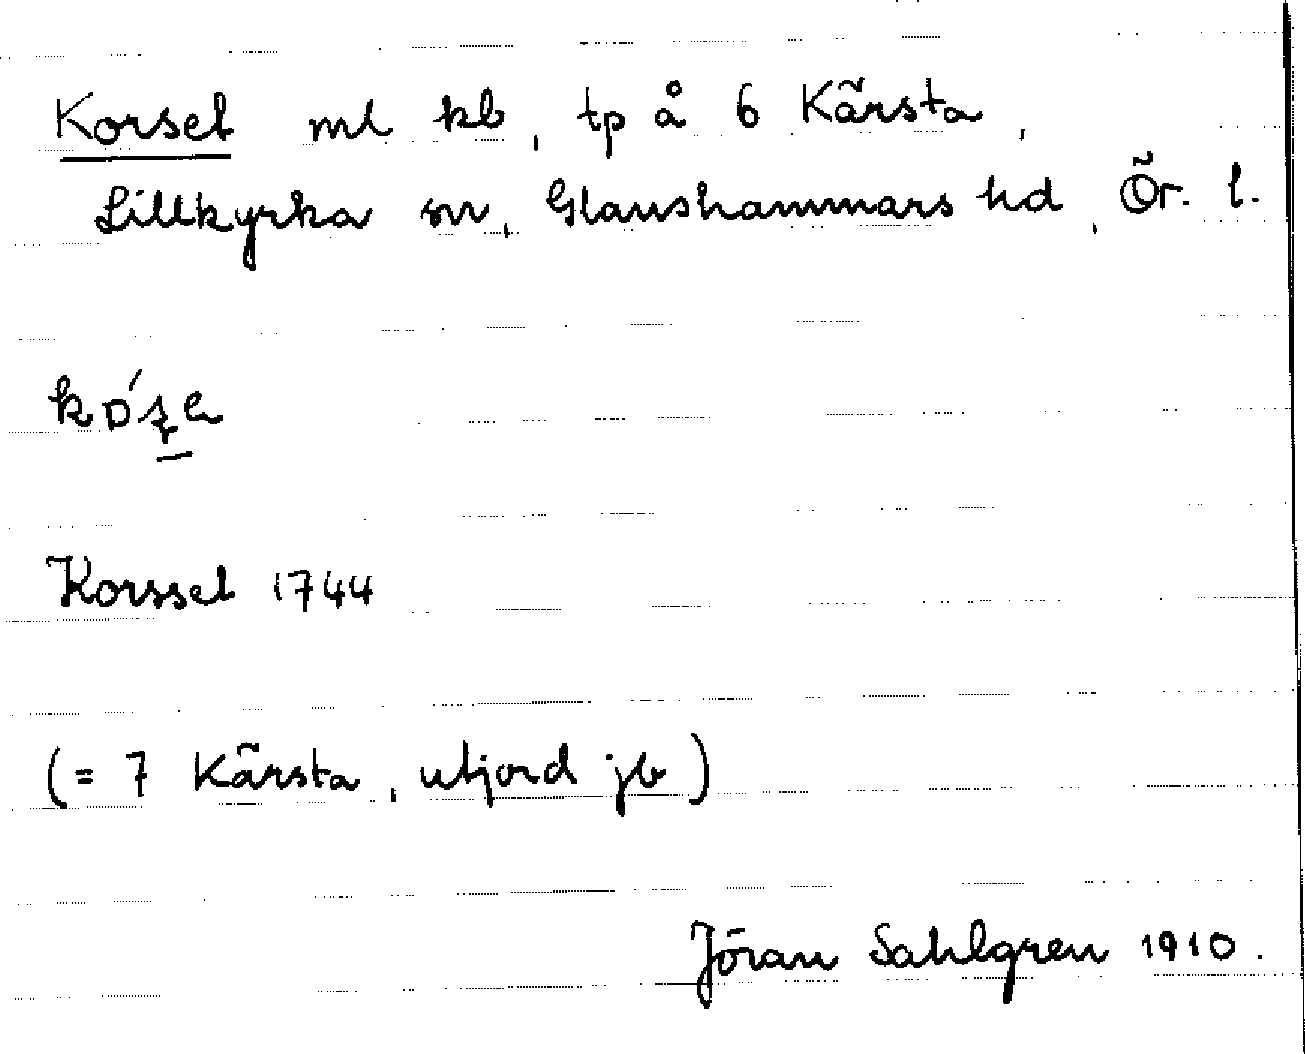 Korset ml kb, tp å 6 Kärsta,
Lillkyrka sn, Glanshammars hd, Ör. l.
Korsset 1744
(= 7 Kärsta, utjord jb)
Jöran Sahlgren 1910.